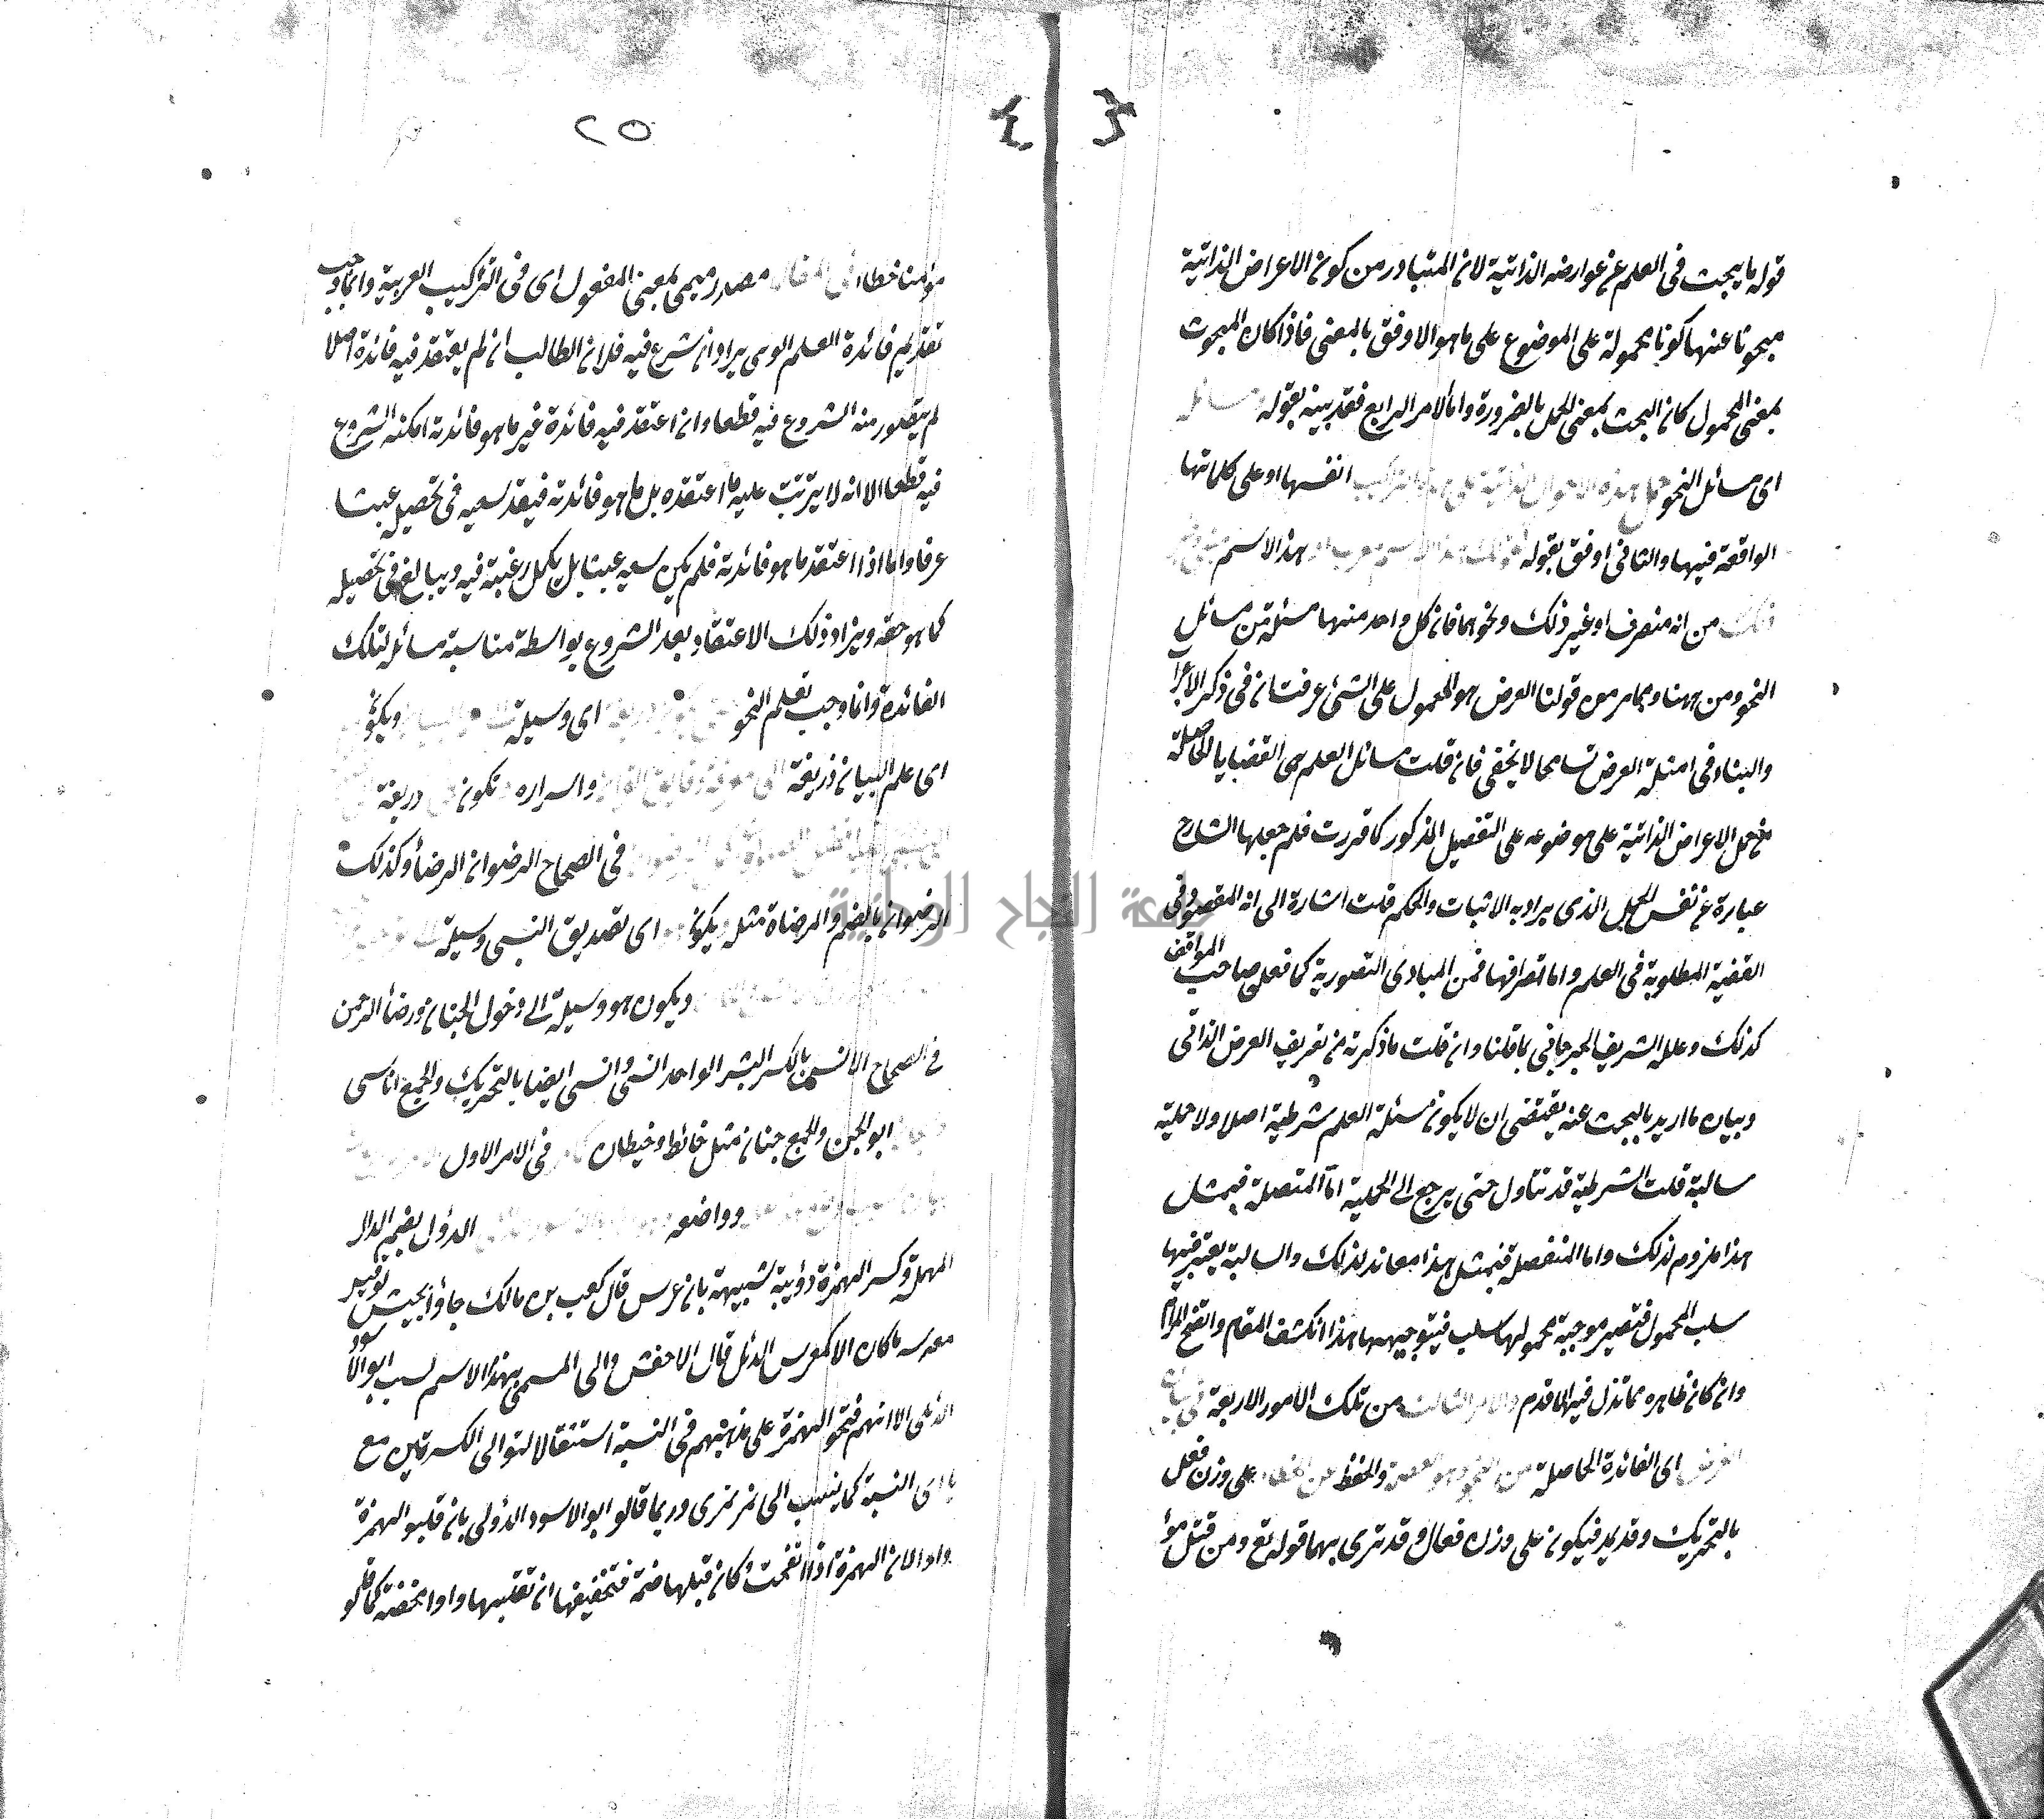 قوله ما يبحث فى العلم عن عوارضه الذاتية لان المتبادر من كون الاعراض الذاتية
مبحوثا عنها كونها محمولة على الموضوع على ما هو الاوفق بالمعنى فاذا كان المبحوث
بمعنى المحمول كان البحث بمعنى الحمل بالضرورة واما الامر الرابع فقد بينه بقوله مسائله
اى مسائل النحو حمل هذه الاحوال الذاتية على التراكيب انفسها او على كلماتها
الواقعة فيها والثانى اوفق بقوله هذا الاسم
ذلك من انه منصرف او غير ذلك ونحوهما فان كل واحد منها مسئلة من مسائل
النحو ومن ههنا ومما مر من قولنا العرض هو المحمول على الشئ عرفت ان فى ذكر الاعراب
والبناء فى امثلة العرض تسامحا لا يخفى فان قلت مسائل العلم هى القضايا الحاصلة
من حمل الاعراض الذاتية على موضوعه على التفصيل المذكور كما قررت فلم جعلها الشارح
عبارة عن نفس الحمل الذى يراد به الاثبات والحكم قلت اشارة الى انه المقصود فى
القضية المطلوبة فى العلم واما اطرافها فمن المبادى التصورية كما فعل صاحب المواقف
كذلك وعلله الشريف الجرجانى بما قلنا وان قلت ما ذكرته من تعريف العرض الذاتى
وبيان ما اريد بالبحث عنه يقتضى ان لا يكون مسئلة العلم شرطية اصلا ولا حملية
سالبة قلت الشرطية قد تتاول حتى يرجع الى الحملية اما المتصلة فبمثل
هذا ملزوم لذلك واما المنفصلة فبمثل هذا معاند لذلك والسالبة يعتبر فيها
سلب المحمول فتصير موجبة محمولها سلب فبتوجيهها هذا انكشف المقام واتضح المرام
وان كان ظاهره مما تذل فيه الاقدم والامر الثالث من تلك الامور الاربعة فى بيان
الغرض اى الفائدة الحاصلة من النحو هو العصمة والحفظ عن الخطاء على وزن فعل
بالتحريك وقد يمد فيكون على وزن فعال وقد ترى بهما قوله تع ومن قتل مؤ
٢٥
مؤمنا خطاء فى المقال مصدر ميمى بمعنى المفعول اى فى التراكيب العربية وانما وجب
تقديم فائدة العلم الذى يراد ان شرع فيه فلان الطالب ان لم يعتقد فيه فائدة اصلا
لم يتصور منه الشروع فيه قطعا وان اعتقد فيه فائدة غير ما هو فائدته امكنه الشروع
فيه قطعا الا انه لا يترتب عليه ما اعتقده بل ما هو فائدته فيعد سعيه فى تحصيله عبثا
عرفا واما اذا اعتقد ما هو فائدته فلم يكن سعيه عبثا بل يكمل رغبته فيه ويبالغ فى تحصيله
كما هو حقه ويزاد ذلك الاعتقاد بعد الشروع بواسطة مناسبة مسائله لتلك
الفائدة وانما وجب تعلم النحو اى وسيلة ويكون
اى علم البيان ذريعة الى معرفة واسراره تكون ذريعة
فى الصحاح الرضوان الرضأ وكذلك
الرضوان بالضم والمرضاة مثله ويكون اى تصديق النبى وسيلة
ويكون هو وسيلة الى دخول الجنان ورضأ الرحمن
فى الصحاح الانس بالكسر البشر الواحد انسى وانسى ايضا بالتحريك والجمع اناسى
ابو الجن والجمع جنان مثل حائط وحيطان فى الامر الاول
وواضعه الدؤل بضم الدال
المهملة وكسر الهمزة دؤيبة شبيهة بابن عرس قال كعب بن مالك جاؤا بجيش لو قيس
معرسه ما كان الا كمعرس الدئل قال الاخفش والى المسمى بهذا الاسم نسب ابو الاسود
الدئلى الا انهم فتحوا الهمزة على مذهبهم فى النسبة استثقالا لتوالى الكسرتين مع
ياءى النسبة كما ينسب الى نمر نمرى وربما قالوا ابو الاسود الدؤلى بان قلبوا الهمزة
واوا لان الهمزة اذا انفتحت وكان قبلها ضمة فتخفيفها ان تقلبها واوا محضة كما قلو
جامعة النجاح الوطنية